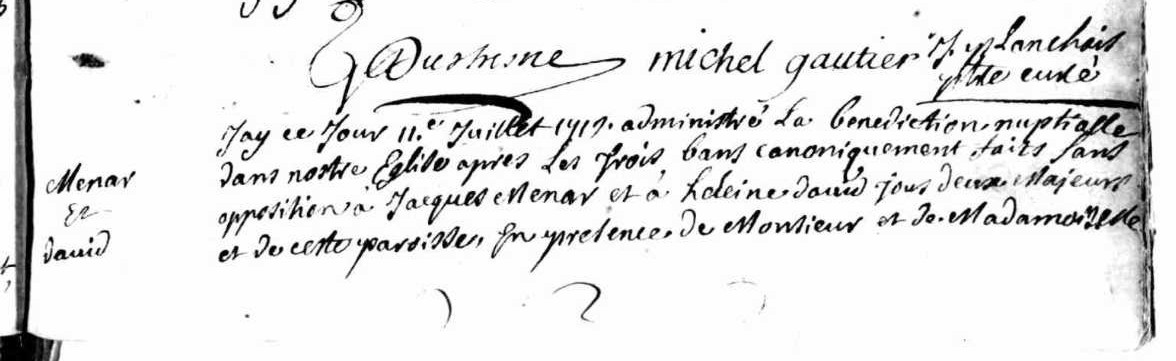 Dushesne michel gautier J. y Lanchais
ptre curé
Jay ce Jour 11.e Juillet administré La benediction nuptialle
Menar dans nostre Eglise apres Les trois bans canoniquement faits sans
Et opposition a Jacques Menar et a heleine david tous deux Majeurs
david et de cette paroisse, En presence de Monsieur et de Madamoiselle